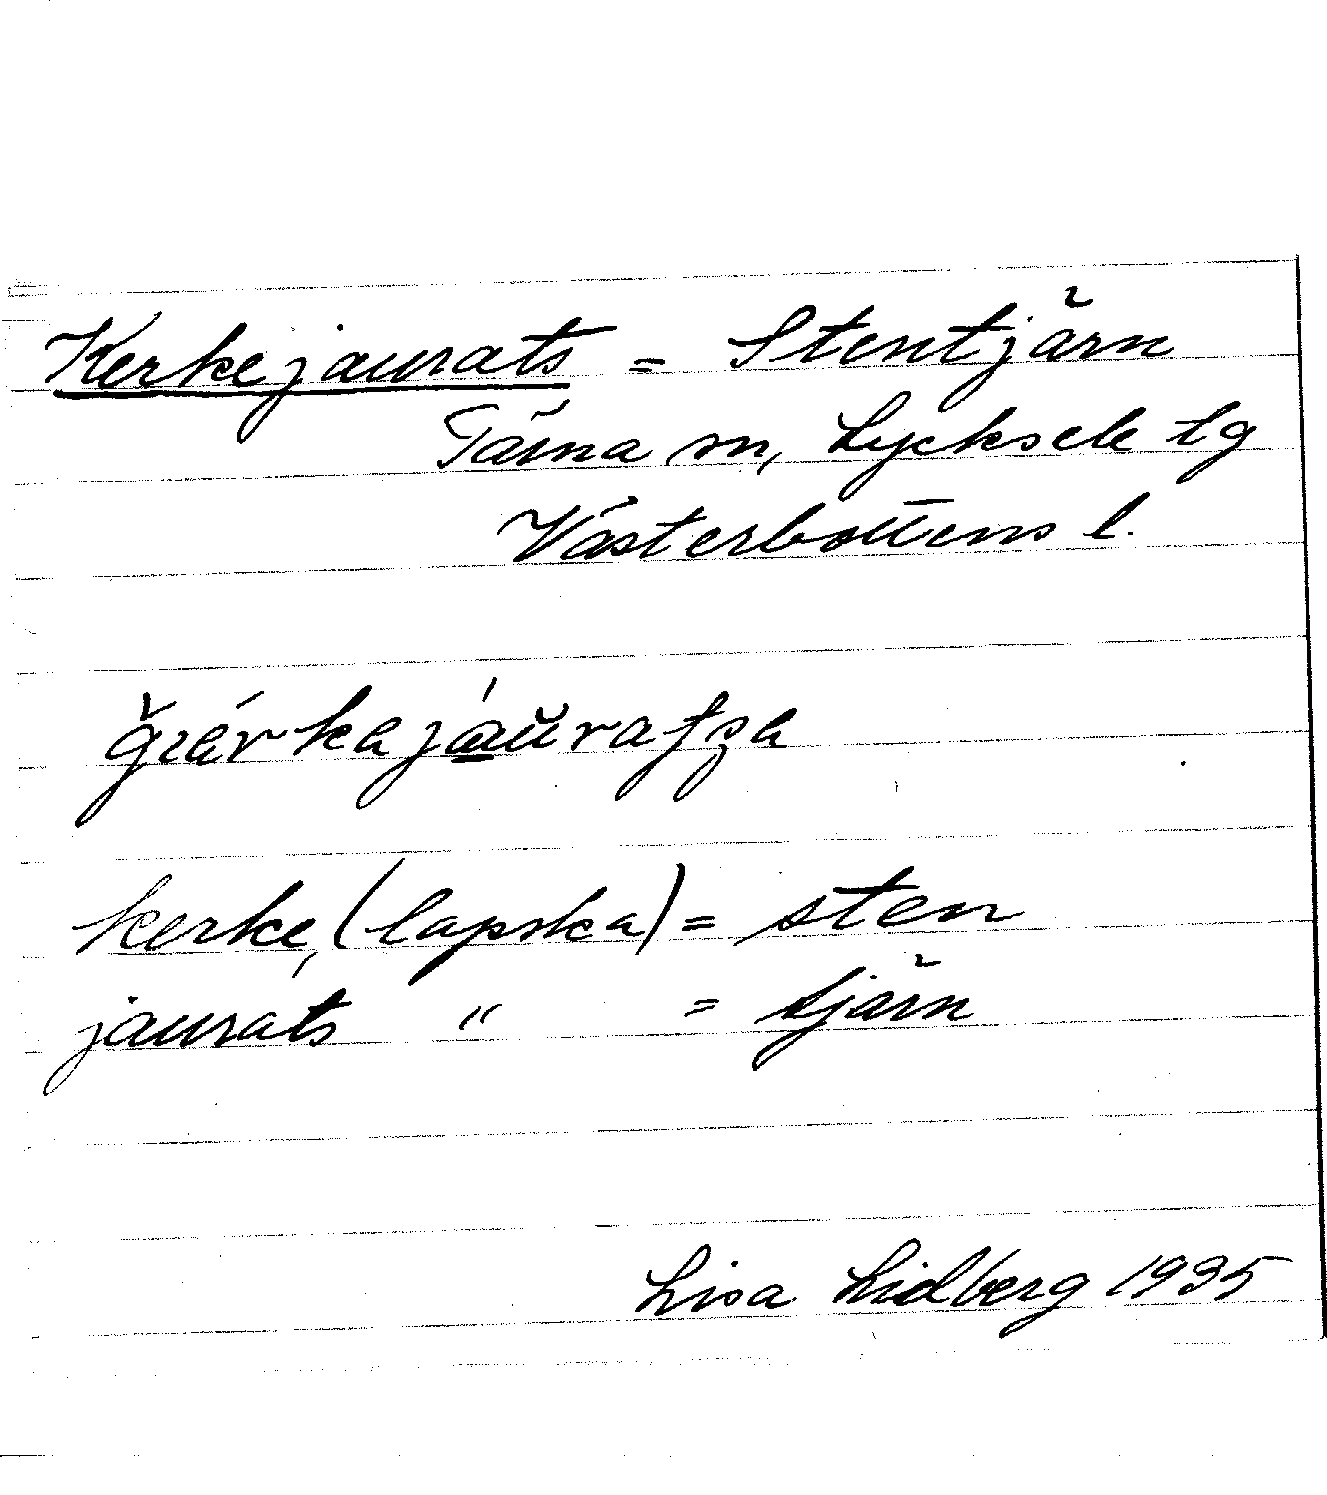 Kerkejaurats = Stentjärn
Tärna sn, Lycksele lg
Västerbottens l.
kerke, (lapska) = sten
jaurats " = tjärn
Lisa Lidberg 1935